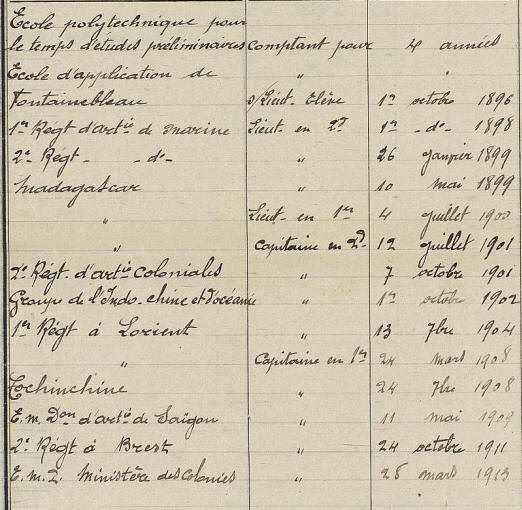 Ecole polytechnique pour
le temps d'études préliminaires comptant pour 4 années
Ecole d'application de " "
Fontainebleau s/Lieut- Elève 1er octobre 1896
1er Régt d'artie de marine Lieut- en 2d 1er -d°- 1898
2e Régt - -d°- " 26 janvier 1899
Madagascar " 10 mai 1899
" Lieut- en 1er 4 juillet 1900
" Capitaine en 2d- 12 juillet 1901
2e Régt- d'artie Coloniales " 7 octobre 1901
Groupe de l'Indo-chine et d'océanie " 1er octobre 1902
1er Régt à Lorient " 13 7bre 1904
" Capitaine en 1er 24 mars 1908
Cochinchine " 24 7bre 1908
E.M. Don d'artie de Saïgon " 11 mai 1909
2e Régt à Brest " 24 octobre 1911
E.M. Ministère des Colonies " 28 mars 1913